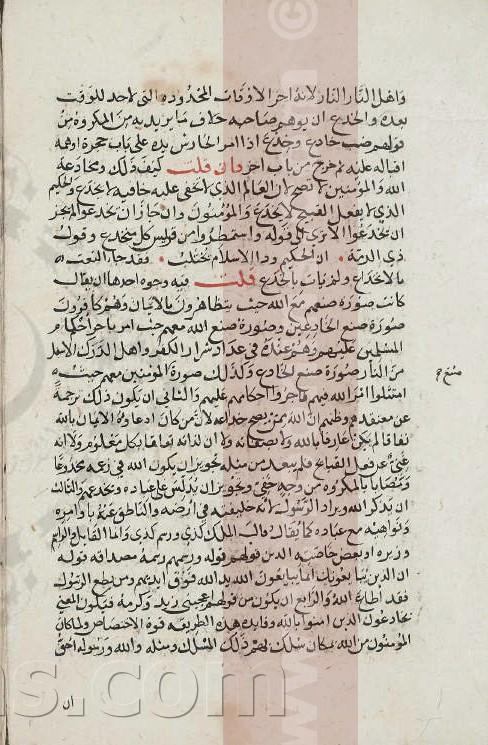 واهل النار النار لانه اخر الاوقات المحدوده التى لاحد للوقت
بعده والخدع ان يوهم صاحبه خلاف ما يريد به من المكروه من
قولهم ضب خادع وخدع اذا امر الحارش يده على باب جحره اوهمه
اقباله عليه ثم خرج من باب اخر فان قلت كيف ذلك ومخادعة
الله والمؤمنين لا تصح لان العالم الذى لا تخفى عليه خافيه لا يخدع والحكيم
الذى لا يفعل القبيح لا يخدع والمؤمنون وان جاز ان يخدعوا لم يجز
ان يخدعوا الا ترى الى قوله واستمطروا من قريش كل منخدع وقول
ذى الرمة ان الحكيم وذا الاسلام يختلب فقد جاء النعت
بالانخداع ولم يات بالخدع قلت فيه وجوه احدها ان يقال
كانت صورة صنعهم مع الله حيث يتظاهرون بالايمان وهم كافرون
صورة صنع الخادعين وصورة صنع الله معهم حيث امر باجراء احكام
المسلمين عليهم وهم عنده فى عداد شرار الكفرة واهل الدرك الاسفل
من النار صورة صنع الخادع وكذلك صورة المؤمنين معهم حيث
صنع
امتثلوا امر الله فيهم فاجروا احكامهم عليهم والثانى ان يكون ذلك ترجمة
عن معتقدهم وظنهم ان الله ممن يصح خداعه لان من كان ادعاوه الايمان بالله
نفاقا لم يكن عارفا بالله ولا بصفاته ولا ان لذاته تعلقا بكل معلوم ولا انه
غنى عن فعل القبايح فلم يبعد من مثله تجويز ان يكون الله فى زعمه مخدوعا
ومصابا بالمكروه من وجه خفى وتجويز ان يدلس على عباده ويخدعهم والثالث
ان يذكر الله ويراد الرسول لانه خليفته فى ارضه والناطق عنه باوامره
ونواهيه مع عباده كما يقال قال الملك كذى ورسم كذى وانما القايل والراسم
وزيره او بعض خاصته الذين قولهم قوله ورسمهم رسمه مصداقه قوله
ان الذين يبايعونك انما يبايعون الله يد الله فوق ايديهم ومن يطع الرسول
فقد اطاع الله والرابع ان يكون من قولهم اعجبنى زيد وكرمه فيكون المعنى
يخادعون الذين امنوا بالله وفايدة هذه الطريقه قوة الاختصاص ولما كان
المؤمنون من الله بمكان سلك بهم ذلك المسلك ومثله والله ورسوله احق
ان
s.com